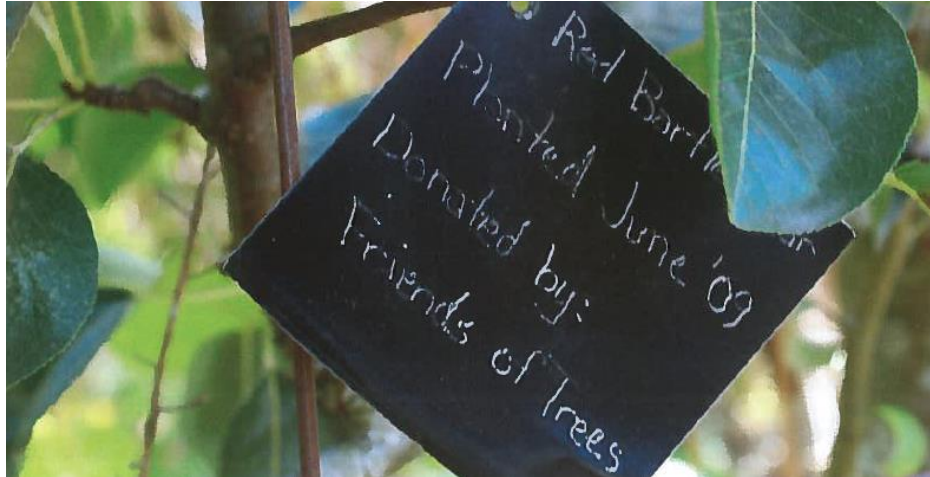 Red
Planted June '09
Donated by:
Friends of Trees